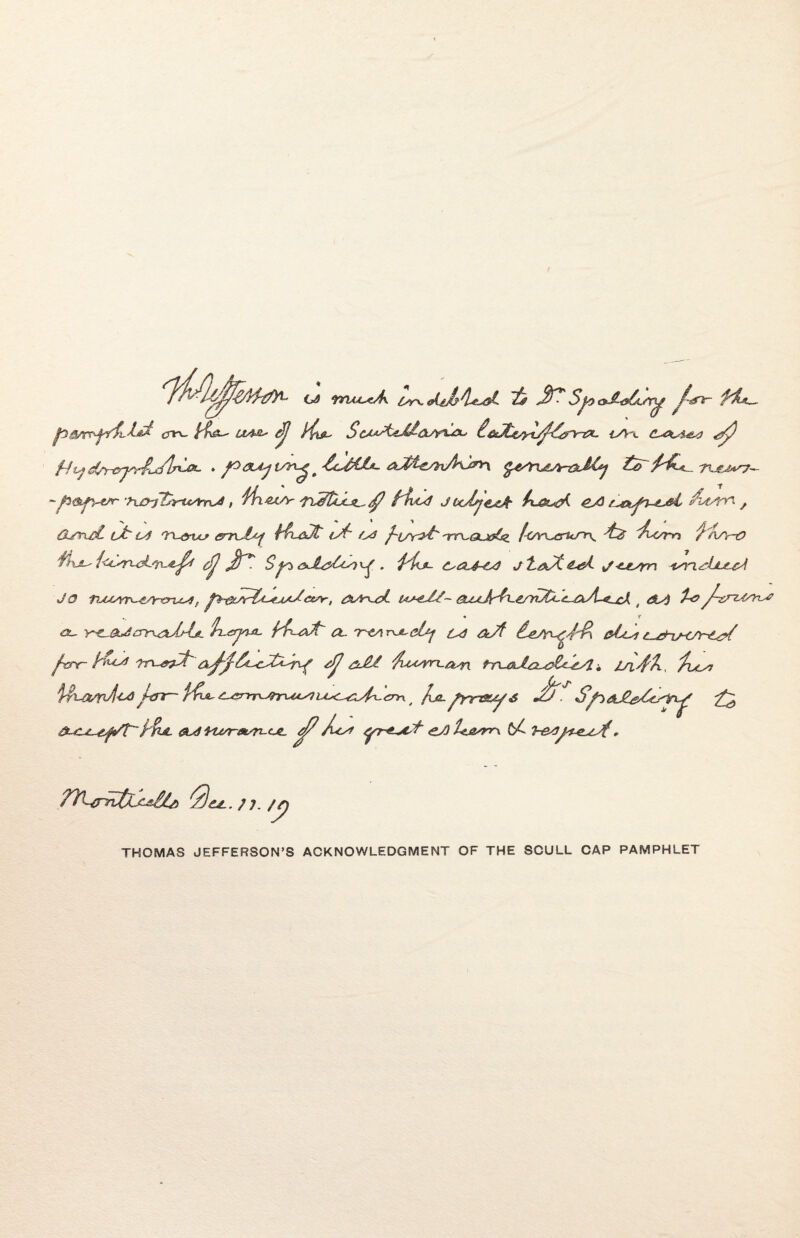 Th: Jefferson is much indebted to Dr. Spalding for the
pamphlet on the use of the Scutellaria lateriflora in cases of
Hydrophobia. paying little attention generally to the news-
-paper nostrums, their notice of this subject had escaped him,
and it is now only that it is first made known to him thro
the kindness of Dr. Spalding. the cases stated seem indeed
so numerous, particular, and well-authenticated, as to furnish
a reasonable hope that a remedy is at length discovered
for this most afflicting of all human maladies. with his
thanks for the communication, he prays Dr. Spalding to
accept the assurance of his great esteem & respect.
Monticello Dec. 11. 19
THOMAS JEFFERSON'S ACKNOWLEDGMENT OF THE SCULL CAP PAMPHLET